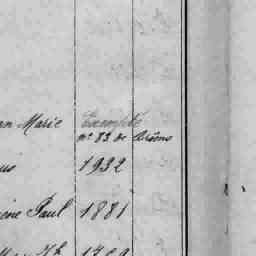 an Marie Exempté
n° 83 de
us 1932
ène Paul 1881